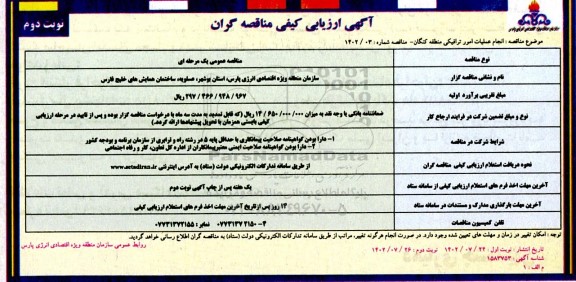 آگهی ارزیابی کیفی مناقصه گران
نوبت دوم
موضوع مناقصه: انجام عملیات امور ترافیکی منطقه کنگان- مناقصه شماره: ۰۳ / ۱۴۰۲
نوع مناقصه
مناقصه عمومی یک مرحله ای
نام و نشانی مناقصه گزار
سازمان منطقه ویژه اقتصادی انرژی پارس، استان بوشهر، عسلویه، ساختمان همایش های خلیج فارس
مبلغ تقریبی برآورد اولیه
۲۹۷ / ۴۶۶ / ۹۴۸ / ۹۶۷ ریال
نوع و مبلغ تضمین شرکت در فرایند ارجاع کار
ضمانتنامه بانکی یا وجه نقد به میزان ۰۰۰ / ۰۰۰ / ۶۵۰ / ۱۴ ریال (که قابل تمدید به مدت سه ماه با درخواست مناقصه گزار بوده و پس از تایید در مرحله ارزیابی کیفی بایستی همزمان با تحویل پیشنهادها ارائه گردد.)
شرایط شرکت در مناقصه
۱- دارا بودن گواهینامه صلاحیت پیمانکاری با حداقل پایه ۵ در رشته راه و ترابری از سازمان برنامه و بودجه کشور
۲- دارا بودن گواهینامه صلاحیت ایمنی معتبر پیمانکاران از اداره کل تعاون، کار و رفاه اجتماعی
نحوه دریافت استعلام ارزیابی کیفی مناقصه گران
از طریق سامانه تدارکات الکترونیکی دولت (ستاد) به آدرس اینترنتی www.setadiran.ir
آخرین مهلت اخذ فرم های استعلام ارزیابی کیفی از سامانه ستاد
یک هفته پس از چاپ آگهی نوبت دوم
آخرین مهلت بارگذاری مدارک و مستندات در سامانه ستاد
۱۴ روز پس از تاریخ آخرین مهلت اخذ فرم های استعلام ارزیابی کیفی
تلفن کمیسیون مناقصات
۴- ۰۷۷۳۱۳۷۲۱۵۰ نمابر: ۰۷۷۳۱۳۷۲۱۵۵
توجه: امکان تغییر در زمان و مهلت های تعیین شده وجود دارد. در صورت انجام هرگونه تغییر، مراتب از طریق سامانه تدارکات الکترونیکی دولت (ستاد) به مناقصه گران اطلاع رسانی خواهد گردید.
تاریخ انتشار: نوبت اول: ۲۴ / ۰۷ / ۱۴۰۲ نوبت دوم: ۲۶ / ۰۷ / ۱۴۰۲
روابط عمومی سازمان منطقه ویژه اقتصادی انرژی پارس
شناسه آگهی: ۱۵۸۳۷۵۳
م الف: ۱